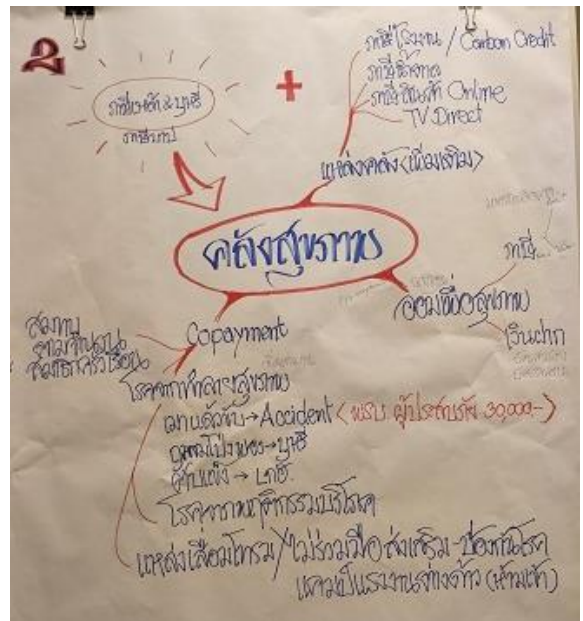 2
ภาษีเหล้า & บุหรี่
ภาษีบาป
+
ภาษีโรงงาน / Carbon Credit
ภาษี
ภาษีสินค้า Online
TV Direct
แหล่งคลัง <เพิ่มเติม>
คลังสุขภาพ
ภาษี
ออมเพื่อสุขภาพ
เงินฝาก
สมทบ
ตามจำนวน
สมาชิกครัวเรือน
Copayment
โรคจากทำลายสุขภาพ
เมาแล้วขับ → Accident < พรบ. ผู้ประสบภัย 30,000.- >
ถุงลมโป่งพอง → บุหรี่
ตับแข็ง → เหล้า
โรคจากพฤติกรรมบริโภค
แหล่งเสื่อมโทรม / ไม่ร่วมมือส่งเสริม-ป้องกันโรค
แรงงานต่างด้าว